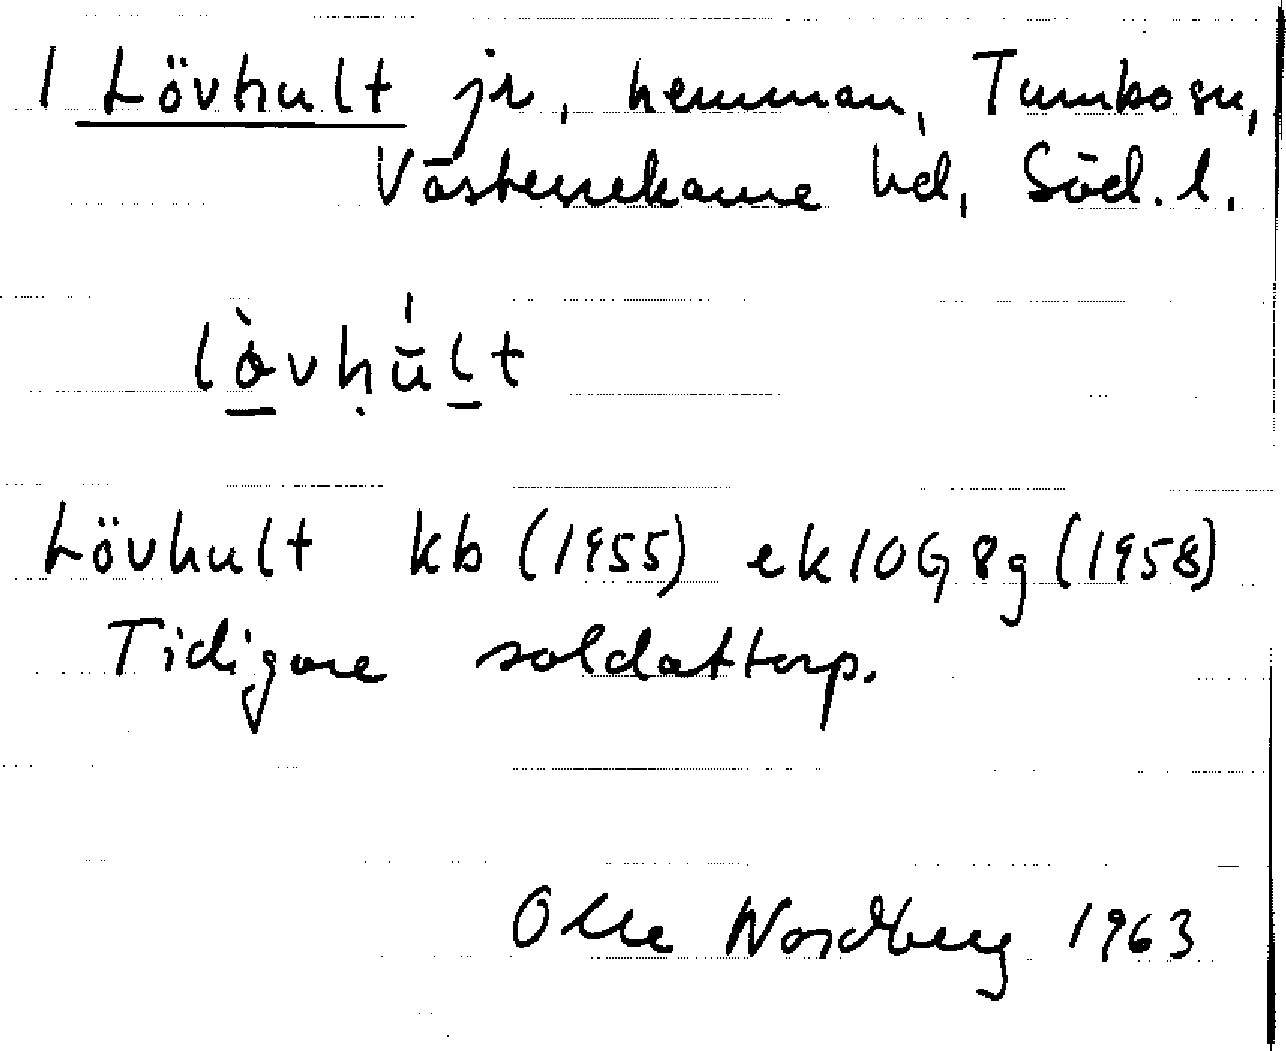 1 Lövhult jr, hemman, Tumbo sn,
Västerrekarne hd, Söd. l.
lòvhu̇lt
Lövhult kb (1955) ek 10G 8g (1958)
Tidigare soldattorp.
Olle Nordberg 1963